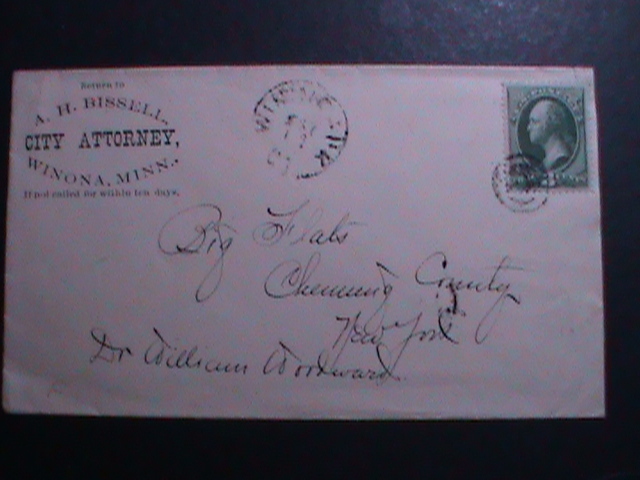 Return to
A. H. BISSELL,
CITY ATTORNEY,
WINONA, MINN.,
If not called for within ten days.
Big Flats
Chemung County
New York
Dr William Woodward